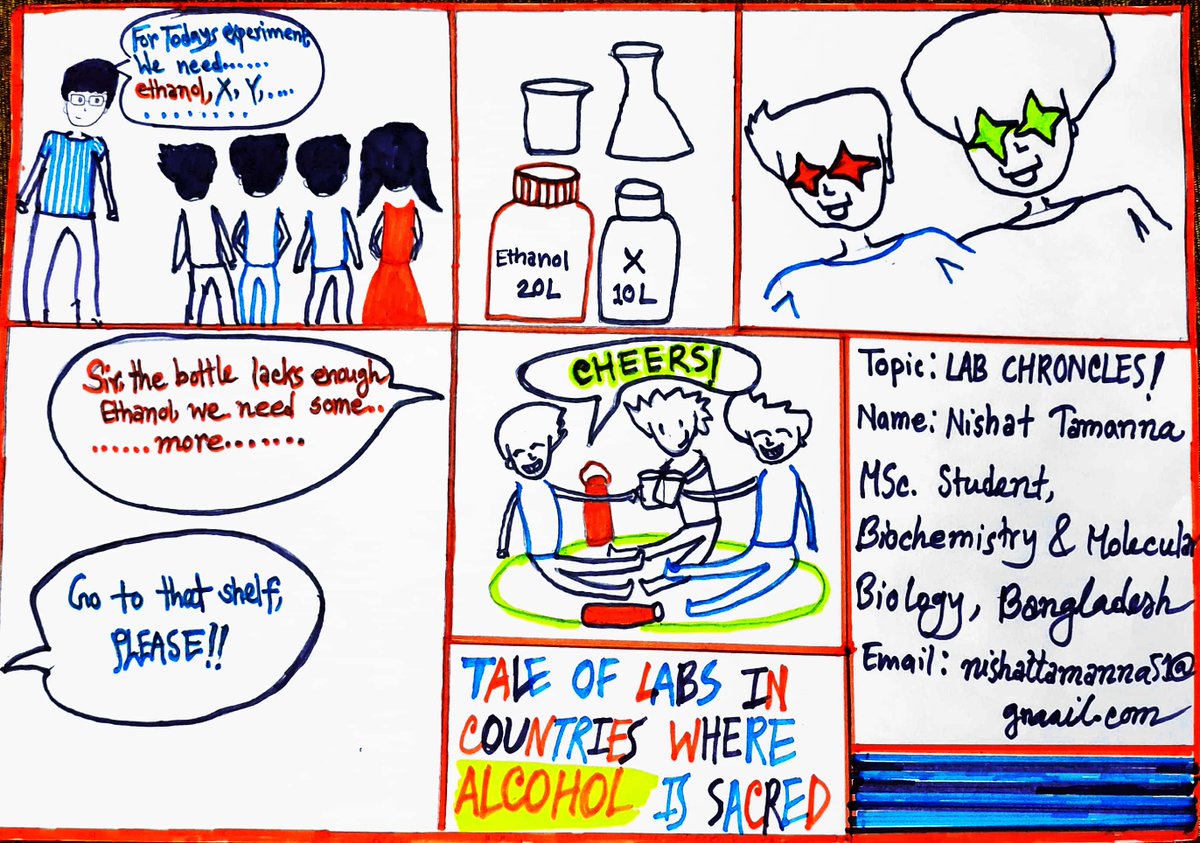 For Todays experiment
We need......
ethanol, X, Y, ....
........
Ethanol
20L
X
10L
Sir, the bottle lacks enough
Ethanol, we need some..
......more.......
Go to that shelf,
PLEASE!!
CHEERS!
TALE OF LABS IN
COUNTRIES WHERE
ALCOHOL IS SACRED
Topic: LAB CHRONCLES!
Name: Nishat Tamanna
MSc. Student,
Biochemistry & Molecular
Biology, Bangladesh
Email: nishattamanna51@
gmail.com